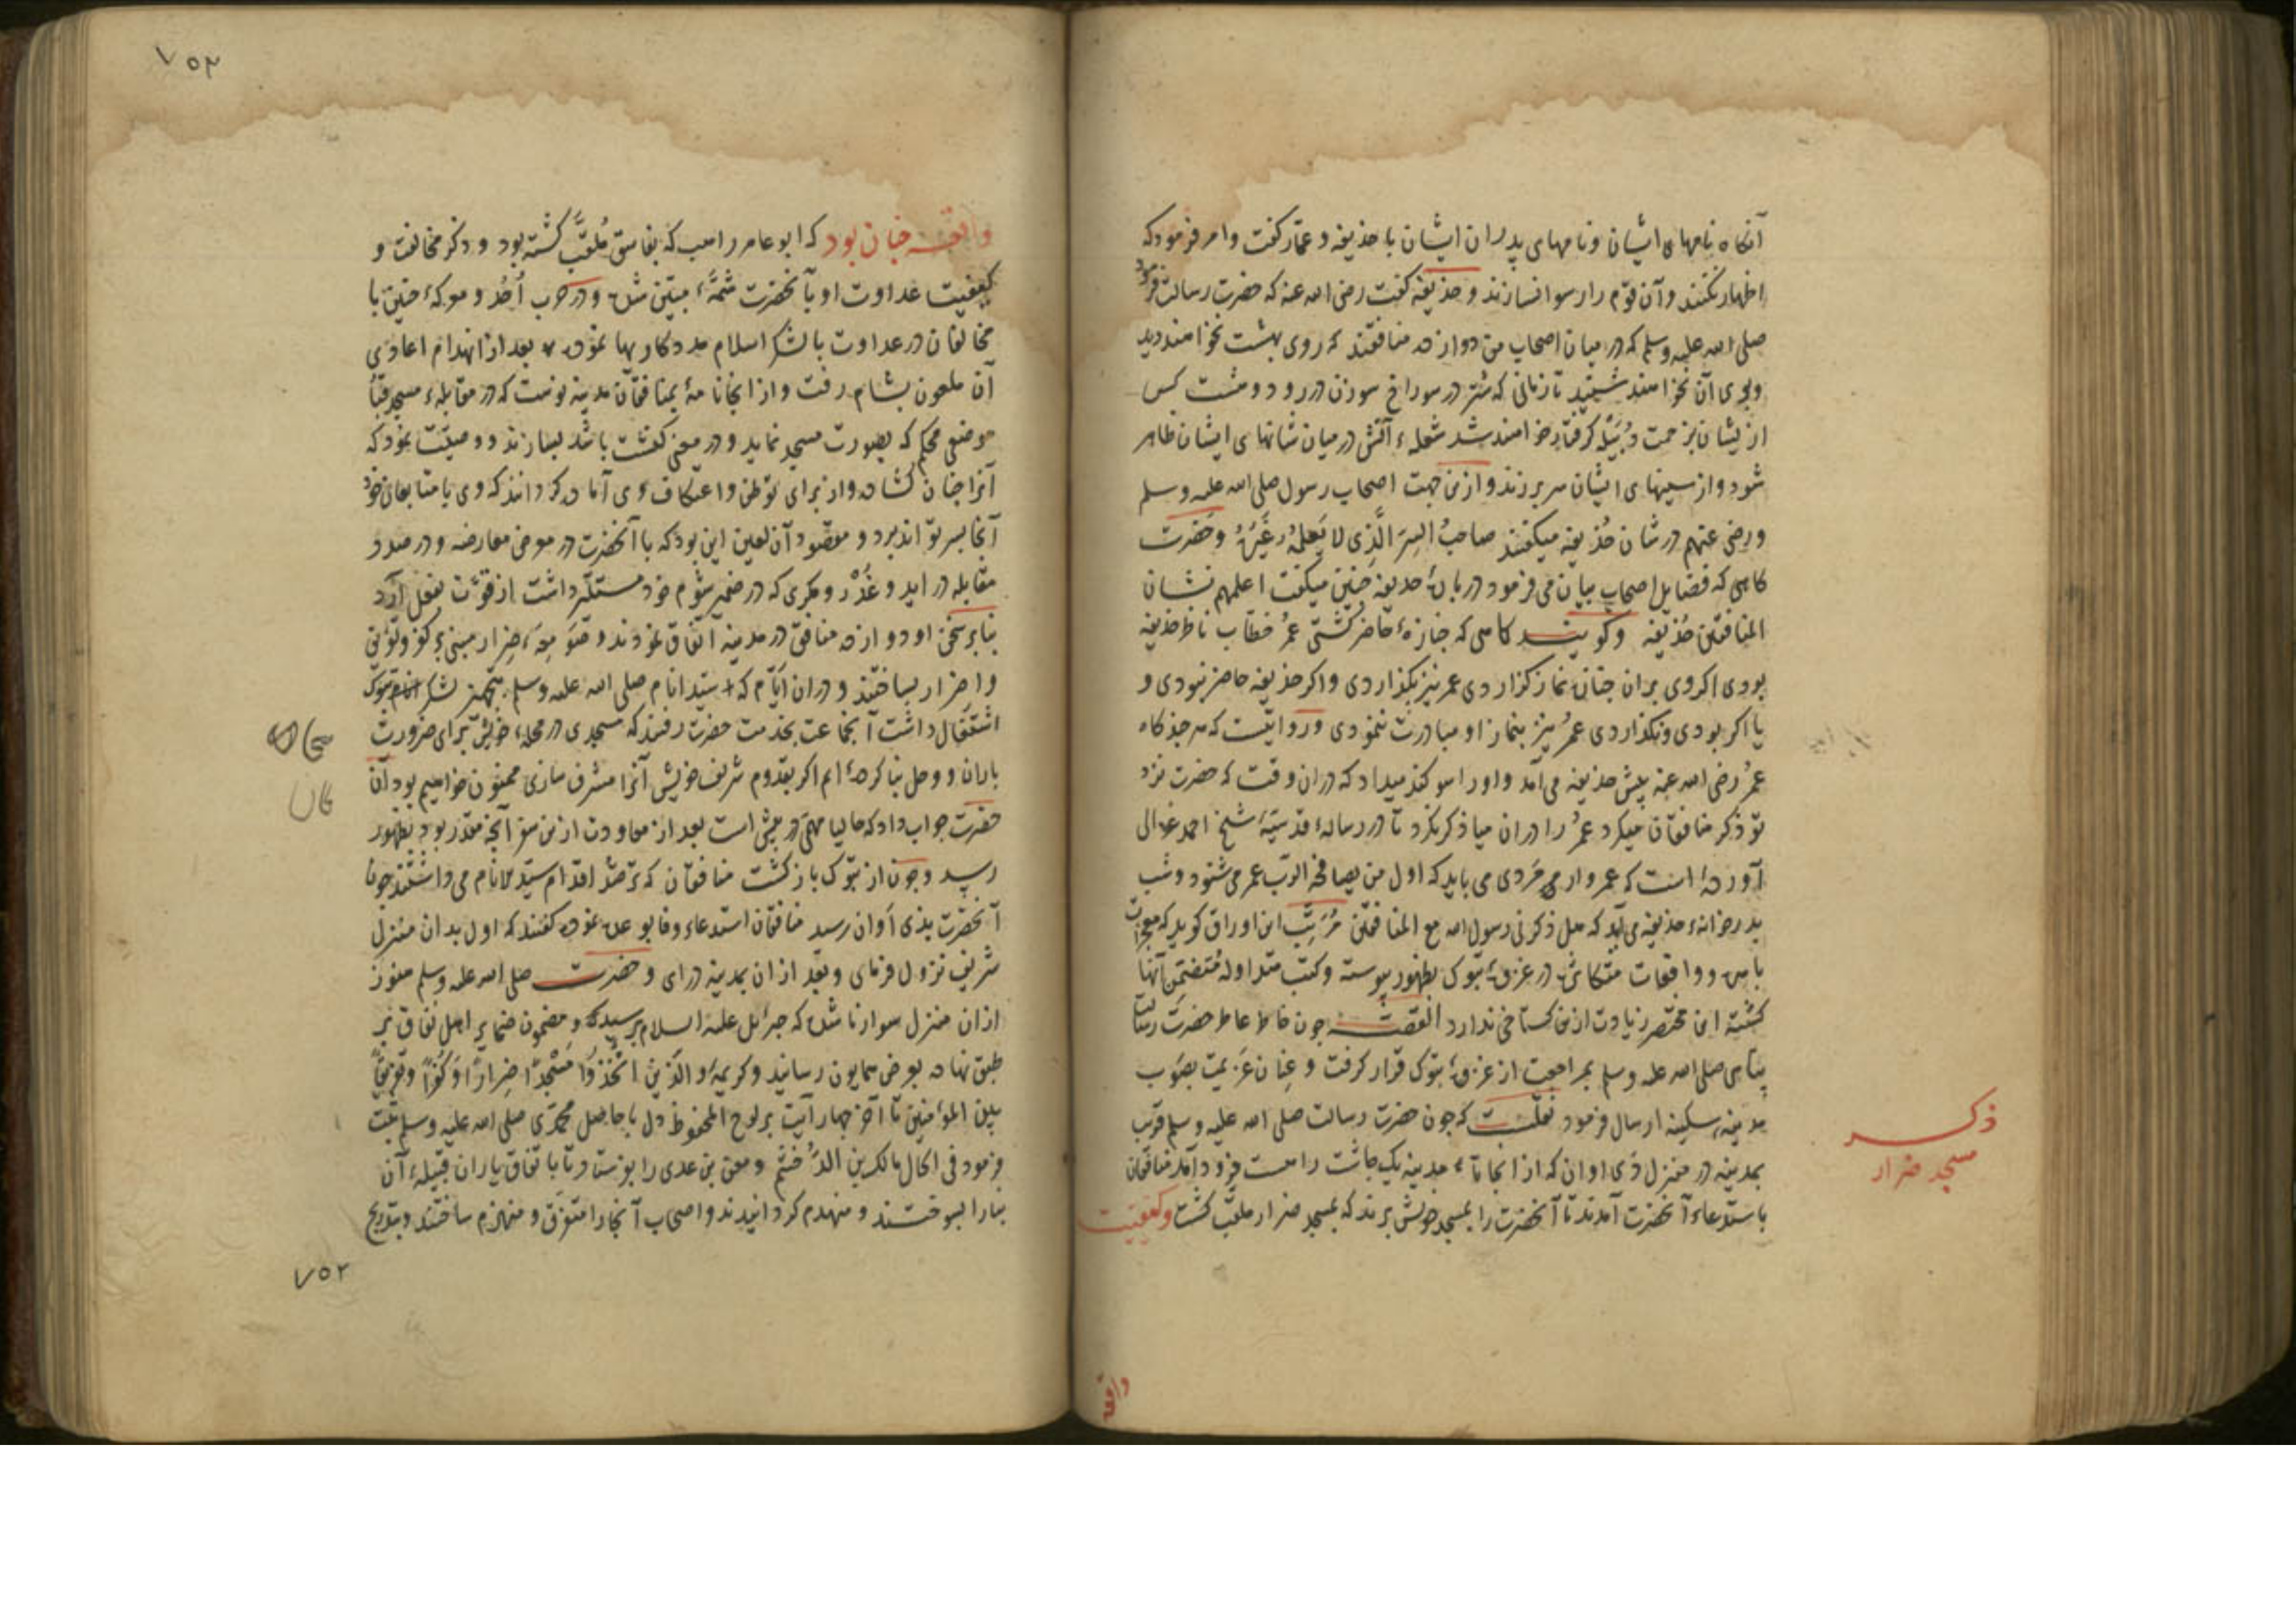 آنکاه نامهای ایشان ونامهای پدران ایشان با حذیفه و عمّار کفت وامر فرمود که
اظهار نکنند وآن قوم را رسوا نسازند و حذیفه کفت رضی الله عنه که حضرت رسالت فرمود
صلی الله علیه وسلم که در میان اصحاب من دوازده منافقند که روی بهشت نخواهند دید
وبوی آن نخواهند شنید تا زمانی که شتر در سوراخ سوزن در رود و هشت کس
ازیشان بزحمت دُبَیْله کرفتار خواهند شد شعلهٔ آتش در میان شانهای ایشان ظاهر
شود واز سینهای ایشان سر بر زند وازین جهت اصحاب رسول صلی الله علیه وسلم
ورضی عنهم در شان حُذیفه میکفتند صاحبُ السِرّ الَّذی لا یَعلمُهُ غَیرُهُ وحضرت
کاهی که فضایل اصحاب بیان می فرمود در بارهٔ حذیفه چنین میکفت اعلمهم بشان
المنافقین حُذیفه وکویند کاهی که جنازهٔ حاضر کشتی عمرُ خطّاب ناظر حذیفه
بودی اکر وی بران جنازه نماز کزاردی عمر نیز بکذاردی واکر حذیفه حاضر نبودی و
یا اکر بودی ونکذاردی عمرُ نیز بنماز او مبادرت ننمودی ورواییست که هر چند کاه
عمرُ رضی الله عنه پیش حذیفه می آمد واورا سوکند میداد که دران وقت که حضرت نزد
تو ذکر منافقان میکرد عمرُ را دران میان ذکر کرد تا در رسالهٔ قدسیّهٔ شیخ احمد غزالی
آورده است که عمروار مردی می باید که اول من یصافحه الرّب عمر می شنود وشب
بدر خانهٔ حذیفه می آید که هل ذکرنی رسول الله مع المنافقین مُرتِّب این اوراق کوید که معجزات
باهره وواقعات متکاثره در غزوهٔ تبوک بظهور پیوسته وکتب متداوله مُتضمّن آنها
کشته این مختصر زیادت ازین کستاخی ندارد القصّه چون خاطر عاطر حضرت رسالت
پناهی صلی الله علیه وسلم بمراجعت از غزوهٔ تبوک قرار کرفت و عِنان عزیمت بصَوْب
مدینهٔ سکینه ارسال فرمود نقلست که چون حضرت رسالت صلی الله علیه وسلم قریب
بمدینه در منزل ذی اوان که از انجا تا مدینه یک چاشت راهست فرود آمد منافقان
باستدعاء آنحضرت آمدند تا آنحضرت را بمسجد خویش برند که بمسجد ضرار ملقّب کشت وکیفیت
ذکر
مسجد ضرار
واقعه
٧٥٣
واقعه چنان بود که ابو عامر راهب که بفاسق مُلقّب کشته بود و ذکر مخالفت و
کیفیت عداوت او بآنحضرت شمّهٔ مبیّن شده ودر حرب اُحُد ومعرکهٔ حنین با
مخالفان در عداوت با لشکر اسلام مددکاریها نموده بعد از انهدام اعادی
آن ملعون بشام رفت واز انجا نامهٔ بمنافقان مدینه نوشت که در مقابلهٔ مسجد قُبا
موضعی محکم که بصورت مسجد نماید ودر معنی کنشت باشد بسازند ووصیّت نمود که
آنرا چنان کشاده واز برای توطّن واعتکاف وی آماده کردانند که وی با متابعان خود
آنجا بسر تواند برد ومقصود آن لعین این بود که با آنحضرت در معرض معارضه ودر صدد
مقابله در آید وغَدْر ومکری که در ضمیر شوم خود مستکن داشت از قوّت بفعل آرد
بنابر سخن او دوازده منافق در مدینه اتّفاق نمودند و صَوْمِعهٔ ضِرار مبنی بر کفر وتفریق
واضرار بساختند ودران ایّام که سیّد انام صلی الله علیه وسلم بتجهیز لشکر تبوک
اشتغال داشت آنجماعت بخدمت حضرت رفتند که مسجدی در محلهٔ خویش برای ضرورت
باران ووحل بنا کرده ایم اکر بقدوم شریف خویش آنرا مشرف سازی ممنون خواهیم بود آن
حضرت جواب داد که حالیا مهمّی در پیش است بعد از معاودت ازین سفر آنچه مقدّر بود بظهور
رسد وچون از تبوک بازکشت منافقان که ترصّد اقدام سیّد الانام می داشتند چون
آنحضرت بذی اَوان رسید منافقان استدعاء وفا بوعده نموده کفتند که اول بدان منزل
شریف نزول فرمای وبعد ازان بمدینه درای وحضرت صلی الله علیه وسلم هنوز
ازان منزل سوار ناشده که جبرائیل علیه السلام برسید ومضمون ضمایر اهل نفاق بر
طبق نهاده بعرض همایون رسانید وکریمهٔ والَّذین اتَّخَذُوا مَسْجِدًا ضِرارًا وَکُفْرًا وتفریقًا
بین المؤمنین تا آخر چهار آیت بر لوح المحفوظ دل باحاصل محمّدی صلی الله علیه وسلم ثبت
فرمود فی الحال مالک بن الدُّخشُم ومعن بن عدی را بفرستاد تا باتفاق یاران قبیلهٔ آن
بنا را بسوختند ومنهدم کردانیدند واصحاب آنجا را متفرّق ومنهزم ساختند وبتدریج
٧٥٢